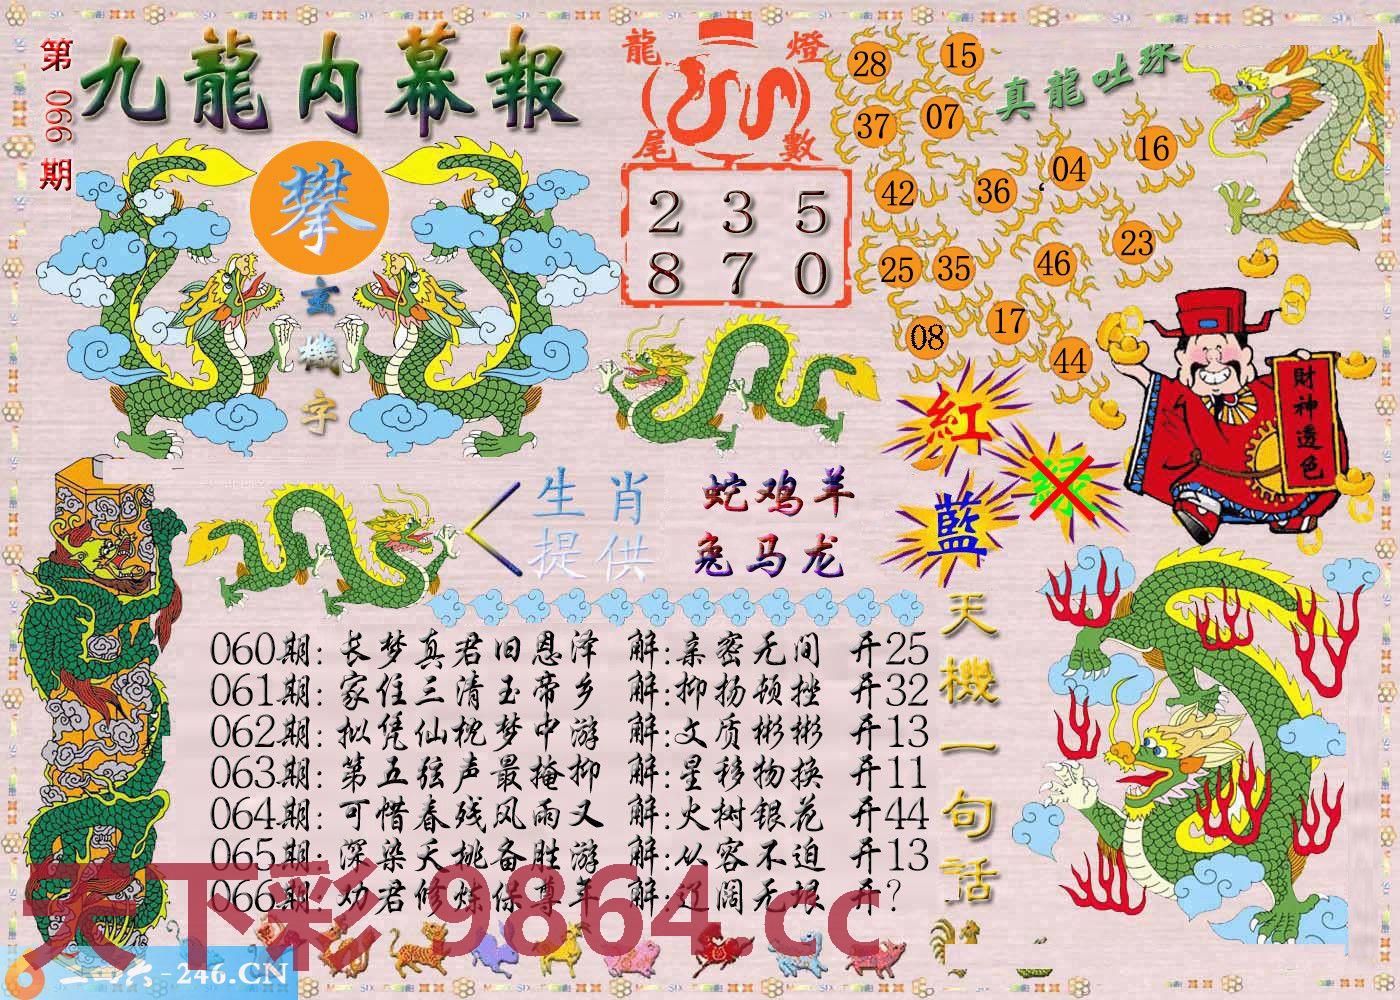 第066期
九龍内幕報
攀
玄機字
龍燈尾數
2 3 5
8 7 0
真龍吐珠
28 15
37 07
04 16
42 36
23
25 35 46
08 17
44
財神透色
紅
绿
藍
生肖提供
蛇鸡羊
兔马龙
天機一句話
060期: 长梦真君旧恩泽 解:亲密无间 开25
061期: 家住三清玉帝乡 解:抑扬顿挫 开32
062期: 拟凭仙枕梦中游 解:文质彬彬 开13
063期: 第五弦声最掩抑 解:星移物换 开11
064期: 可惜春残风雨又 解:火树银花 开44
065期: 深染夭桃备胜游 解:从容不迫 开13
066期: 劝君修炼保尊年 解:辽阔无垠 开?
天下彩 9864.cc
二四六-246.CN